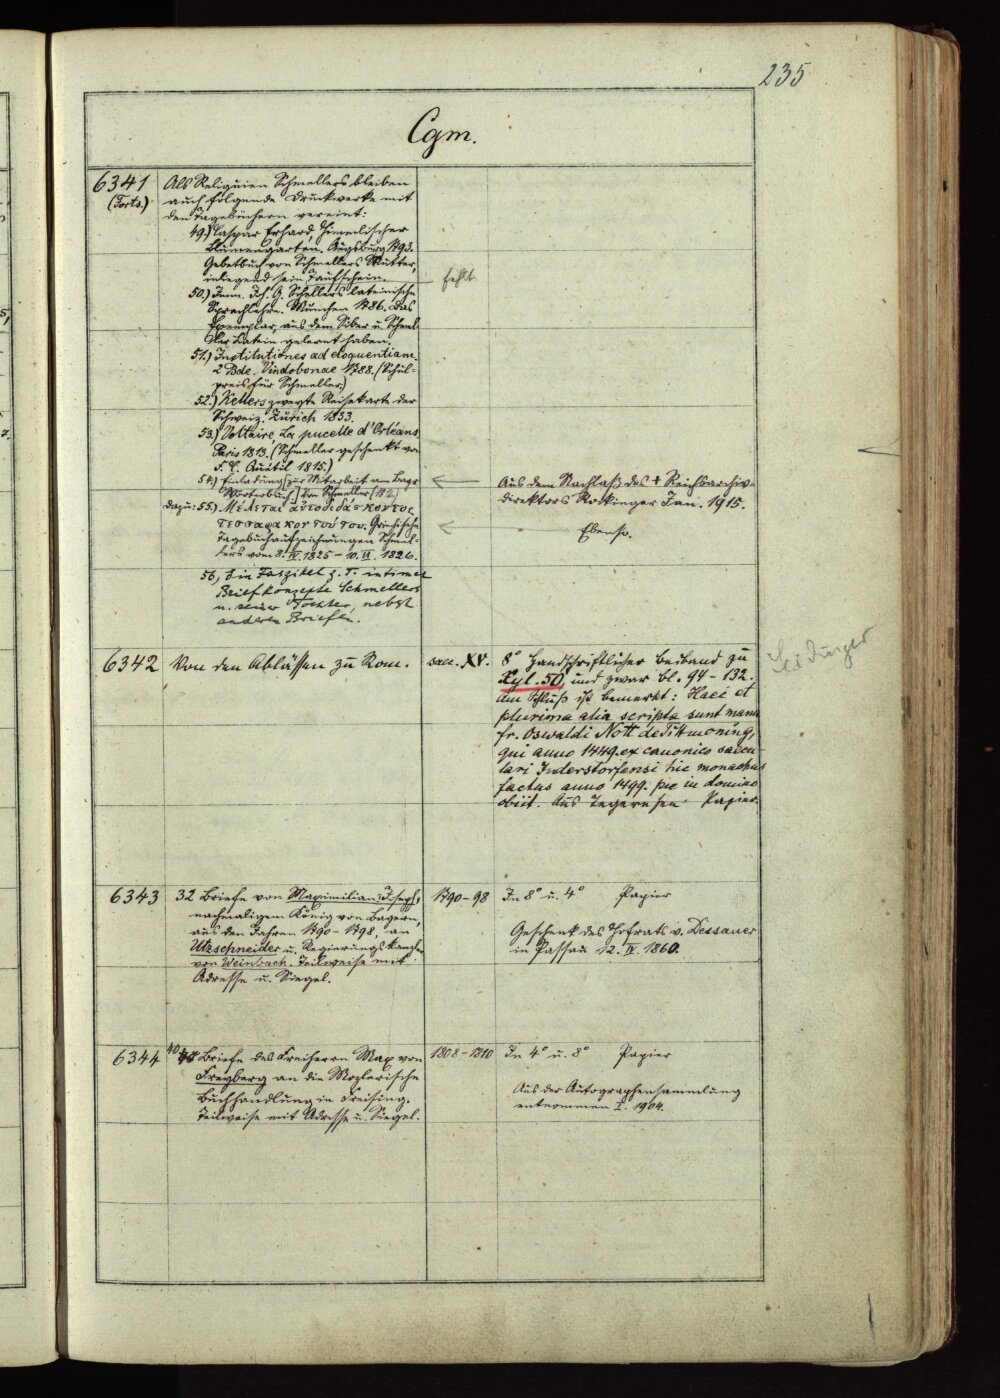 235
Cgm.
6341
(Forts.)
Als Reliquien Schmellers bleiben
auch folgende Druckwerke mit
den Tagebüchern vereint:
49.) Caspar Erhard, Himmlischer
Blumengarten. Augsburg 1793.
Gebetbuch von Schmellers Mutter,
inliegend sein Taufschein.
fehlt
50.) Imm. Joh. G. Schellers lateinische
Sprachlehre. München 1786. Das
Exemplar, aus dem Siber u. Schmel-
ler Latein gelernt haben.
51.) Institutiones ad eloquentiam.
2 Bde. Vindobonae 1788. (Schul-
preis für Schmeller)
52.) Kellers zweyte Reisekarte der
Schweiz. Zürich 1833.
53.) Voltaire, La pucelle d'Orléans
Paris 1813. (Schmeller geschenkt von
1815.)
54.) Einladung zur Mitarbeit am Bayr.
Wörterbuch von Schmeller
Aus dem Nachlaß des † Reichsarchiv-
direktors Rockinger Jan. 1915.
Dazu: 55.) Μελεται αὐτοδιδάσκοντος
τεσσαρακοντούτου. Griechische
Tagebuchaufzeichnungen Schmel-
lers vom 8. IV. 1825 – 10. II. 1826.
Ebenso.
56, Ein Faszikel z. T. intimer
Briefkonzepte Schmellers
u. seiner Tochter, nebst
anderen Briefen.
6342
Von den Ablässen zu Rom.
saec. XV.
8° Handschriftlicher Beiband zu
Xyl. 50, und zwar bl. 94–132.
Am Schluß ist bemerkt: Haec et
plurima alia scripta sunt manu
fr. Oswaldi Nott de Titmoning,
qui anno 1449. ex canonico saecu-
lari Inderstorfensi hic monachus
factus anno 1499. pie in domino
obiit. Aus Tegernsee Papier.
Leidinger
6343
32 Briefe von Maximilian Joseph,
nachmaligem König von Bayern,
aus den Jahren 1790–1798, an
Utzschneider u. Regierungskanzler
von Weinbach. Teilweise mit
Adresse u. Siegel.
1790–98
In 8° u. 4° Papier
Geschenk des Hofrats v. Dessauer
in Passau 12. IV. 1860.
6344
40 Briefe des Freiherrn Max von
Freyberg an die Mozlerische
Buchhandlung in Freising.
Teilweise mit Adresse u. Siegel.
1808–1810
In 4° u. 8° Papier
Aus der Autographensammlung
entnommen I. 1904.